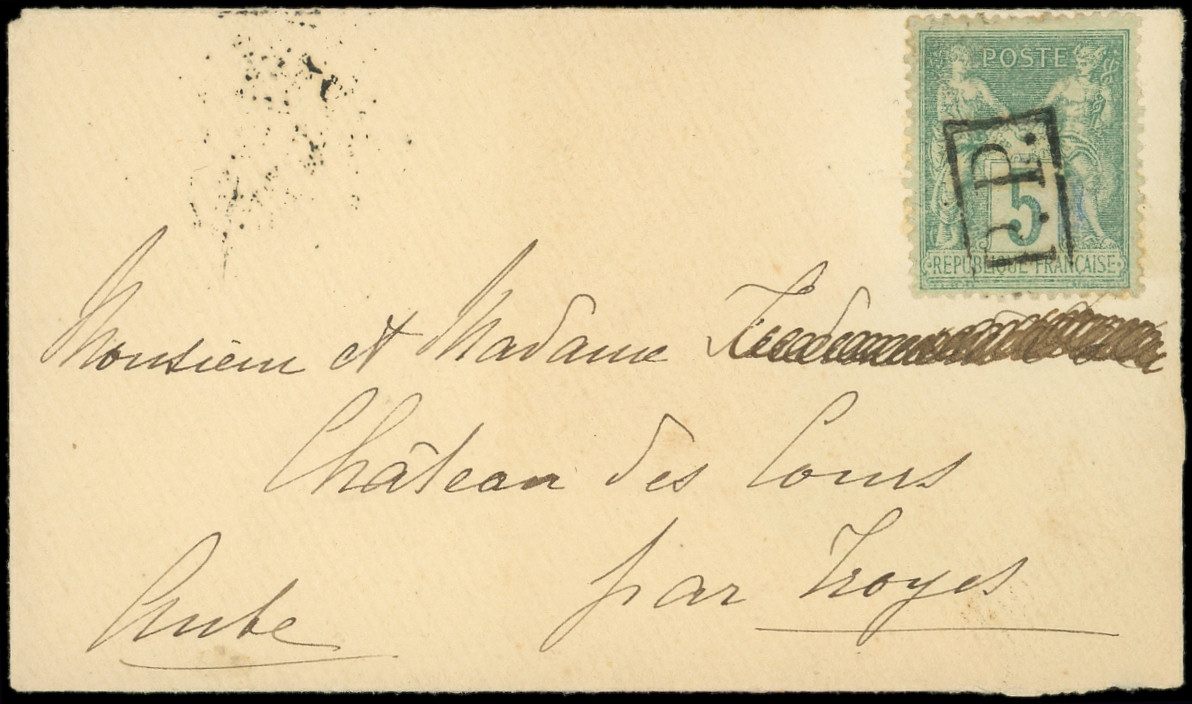 POSTE
P.P.
5
RÉPUBLIQUE FRANÇAISE
Monsieur et Madame
Château des Cours
par Troyes
Aube